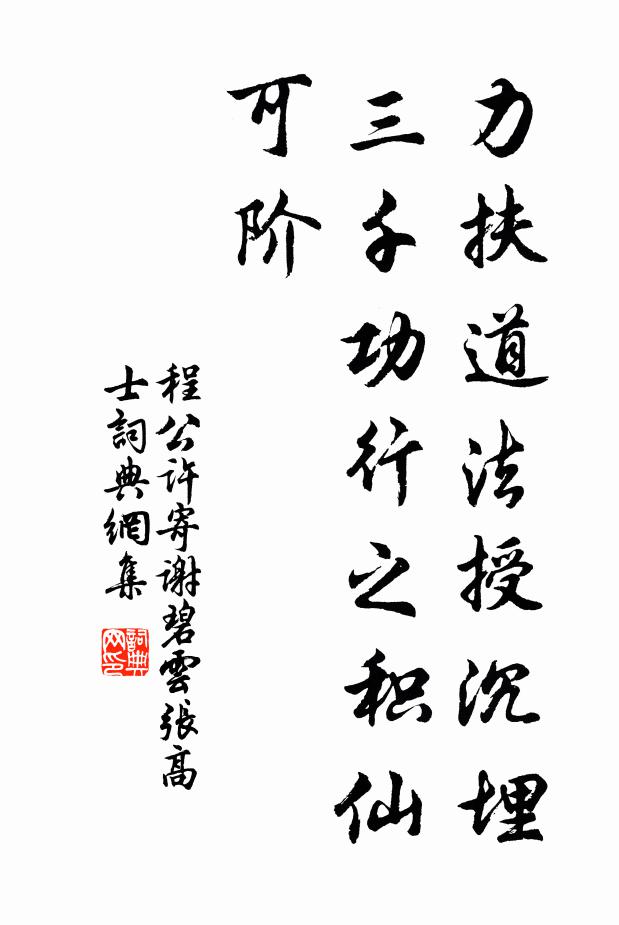 力扶道法授沉埋
三千功行之积仙
可阶
程公许寄谢碧雲張高
士詞典網集
詞典
网印